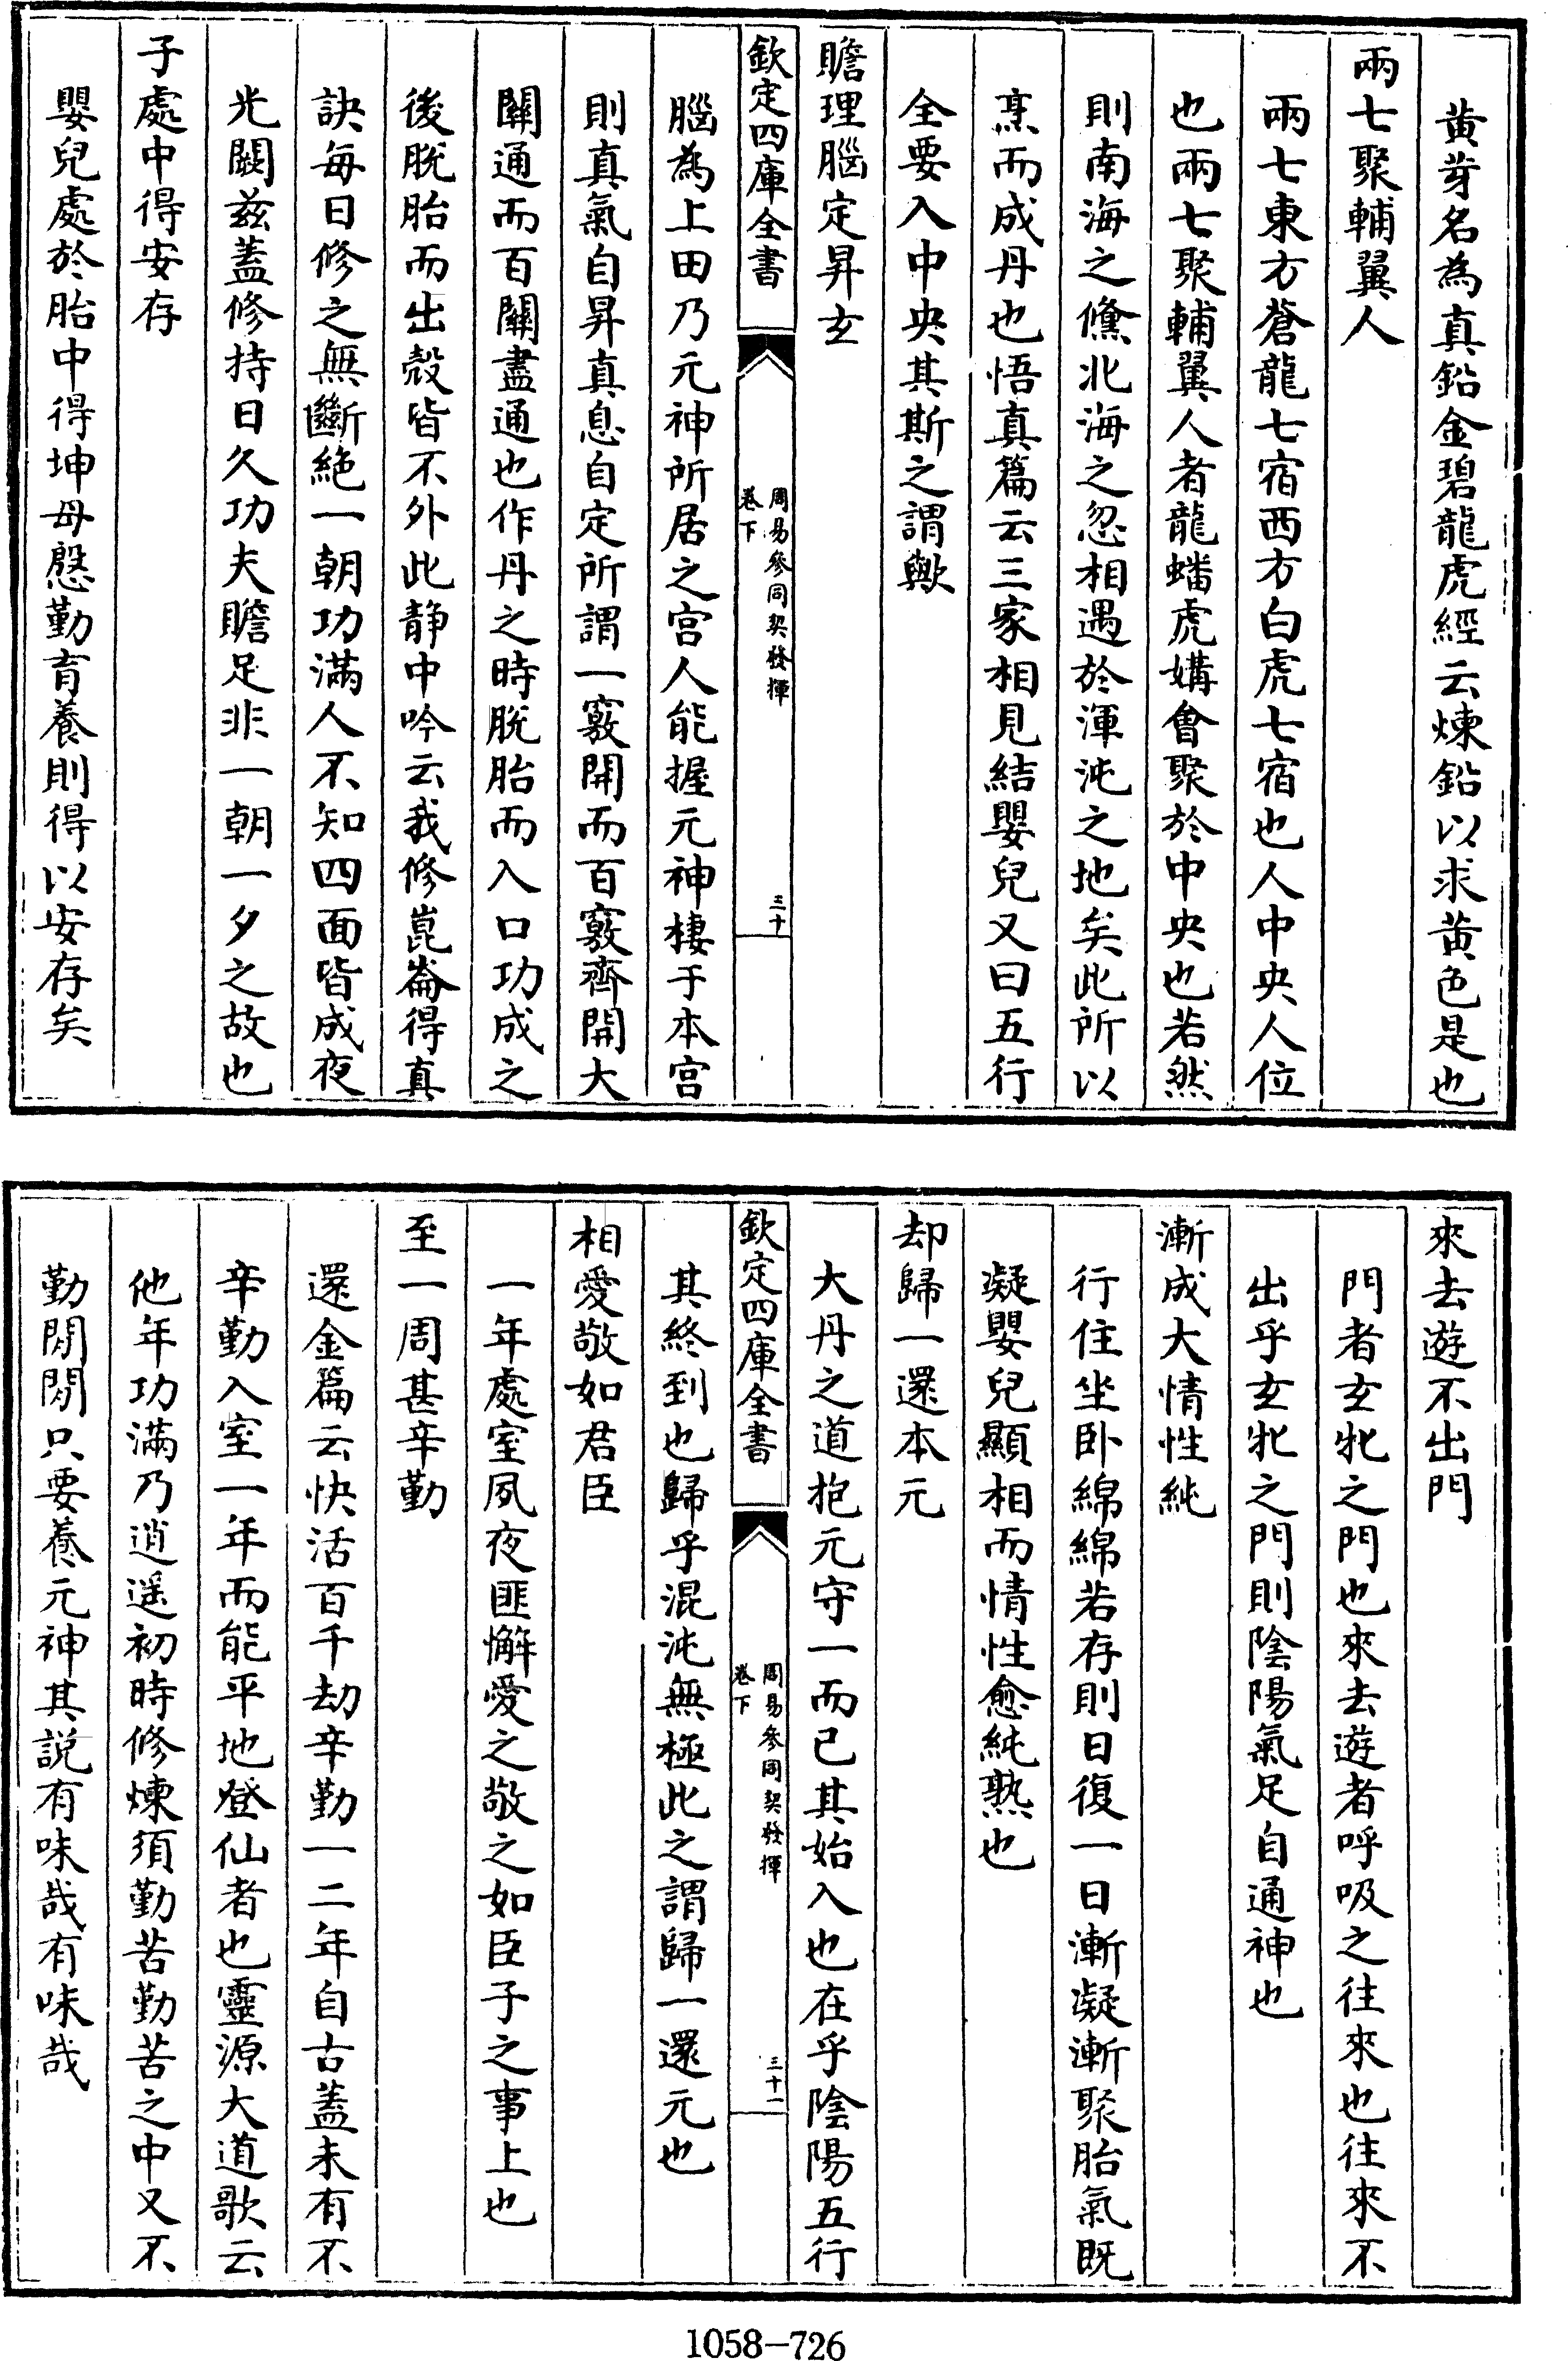 黄芽名為真鉛金碧龍虎經云煉鉛以求黄色是也
兩七聚輔翼人
兩七東方蒼龍七宿西方白虎七宿也人中央人位
也兩七聚輔翼人者龍蟠虎媾㑹聚於中央也若然
則南海之儵北海之忽相遇於渾沌之地矣此所以
烹而成丹也悟真篇云三家相見結嬰兒又曰五行
全要入中央其斯之謂歟
瞻理腦定昇玄
欽定四庫全書
周易參同契發揮
卷下
三十
腦為上田乃元神所居之宫人能握元神棲于本宫
則真氣自昇真息自定所謂一竅開而百竅齊開大
關通而百關盡通也作丹之時脱胎而入口功成之
後脱胎而出殻皆不外此静中吟云我修崑崙得真
訣每日修之無斷絶一朝功滿人不知四面皆成夜
光闕兹蓋修持日久功夫贍足非一朝一夕之故也
子處中得安存
嬰兒處於胎中得坤母慇勤育養則得以安存矣
來去遊不出門
門者玄牝之門也來去遊者呼吸之往來也往來不
出乎玄牝之門則陰陽氣足自通神也
漸成大情性純
行住坐卧綿綿若存則日復一日漸凝漸聚胎氣既
凝嬰兒顯相而情性愈純熟也
却歸一還本元
大丹之道抱元守一而已其始入也在乎陰陽五行
欽定四庫全書
周易參同契發揮
卷下
三十一
其終到也歸乎混沌無極此之謂歸一還元也
相愛敬如君臣
一年處室夙夜匪懈愛之敬之如臣子之事上也
至一周甚辛勤
還金篇云快活百千劫辛勤一二年自古蓋未有不
辛勤入室一年而能平地登仙者也靈源大道歌云
他年功滿乃逍遥初時修煉須勤苦勤苦之中又不
勤閒閒只要養元神其説有味哉有味哉
1058-726